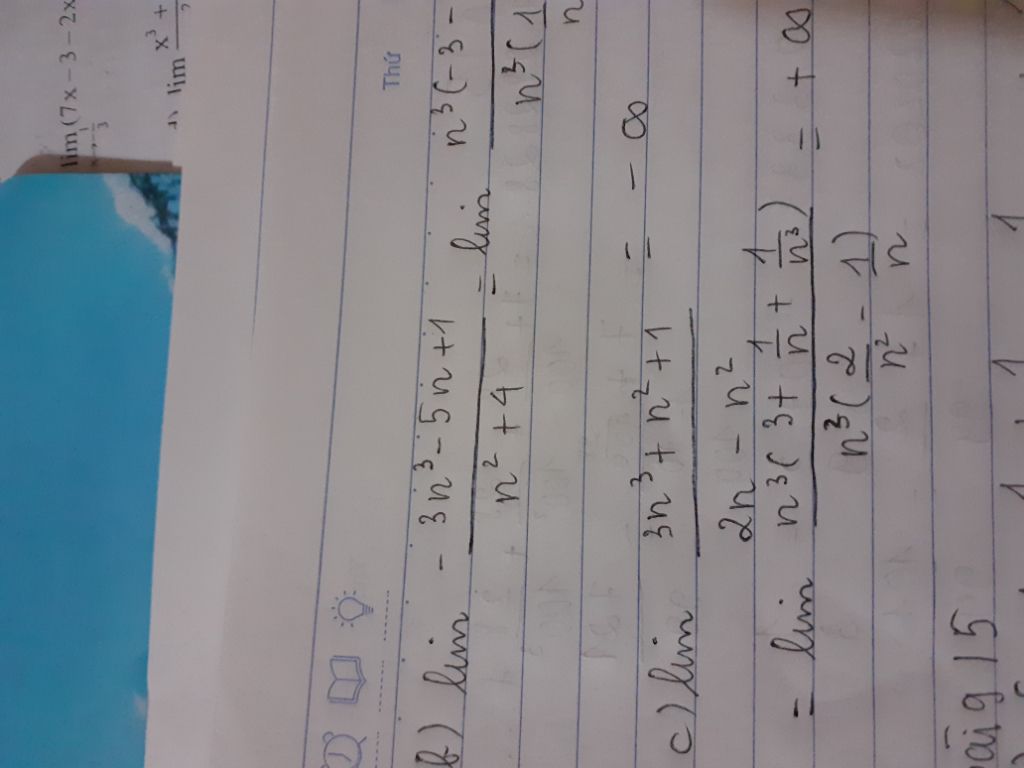 lim(7x − 3 − 2x
x→−3
lim x³ +
Thứ
b) lim − 3n³ − 5n + 1 / n² + 4 = lim n³(−3 − / n³(1/n
= − ∞
c) lim 3n³ + n² + 1 / 2n − n²
= lim n³(3 + 1/n + 1/n³) / n³(2/n² − 1/n) = + ∞
15